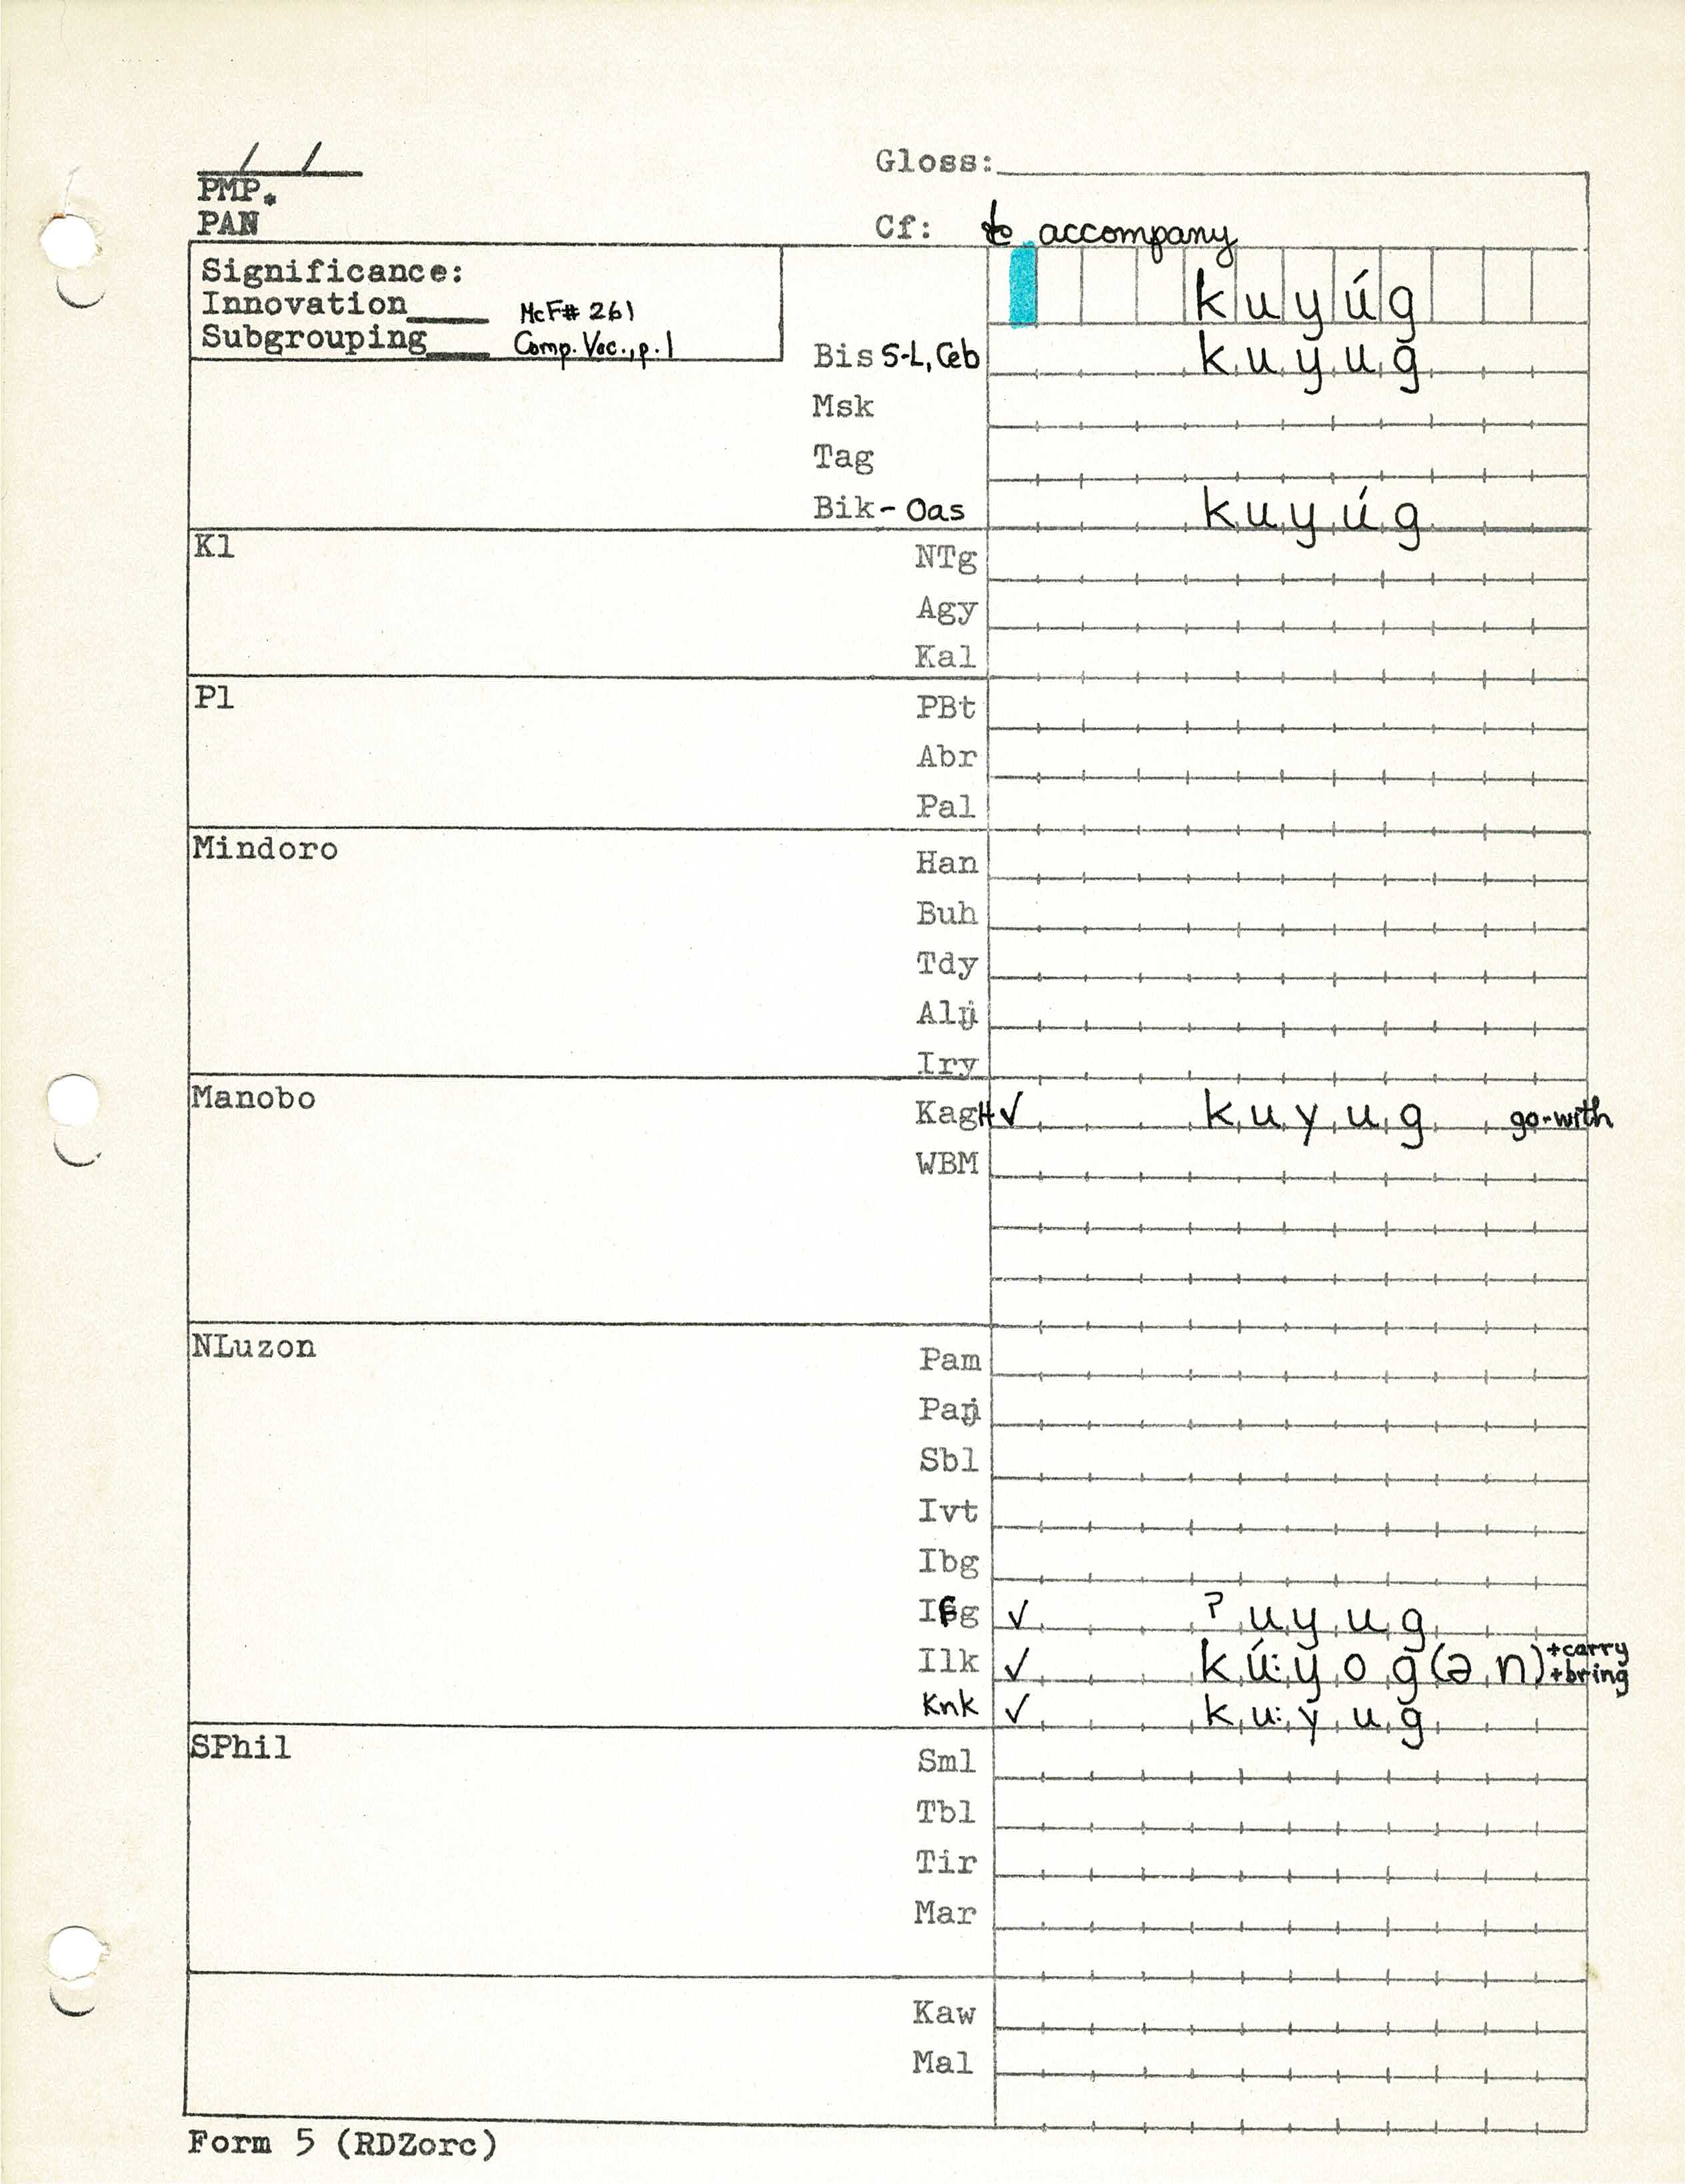 / /
Gloss:
PMP.
PAN
Cf: to accompany
Significance:
Innovation____ McF# 261
Subgrouping____ Comp. Voc., p. 1
kuyúg
Bis S-L, Ceb kuyug
Msk
Tag
Bik - Oas kuyúg
Kl
NTg
Agy
Kal
Pl
PBt
Abr
Pal
Mindoro
Han
Buh
Tdy
Alŋ
Iry
Manobo
KagH ✓ kuyug go-with
WBM
NLuzon
Pam
Paŋ
Sbl
Ivt
Ibg
Ifg ✓ ʔuyug
Ilk ✓ kú:yog(ən) +carry
+bring
Knk ✓ ku:yug
SPhil
Sml
Tbl
Tir
Mar
Kaw
Mal
Form 5 (RDZorc)